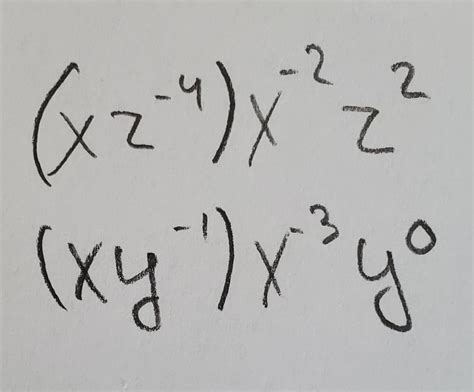 (xz⁻⁴)x⁻²z²
(xy⁻¹)x⁻³y⁰